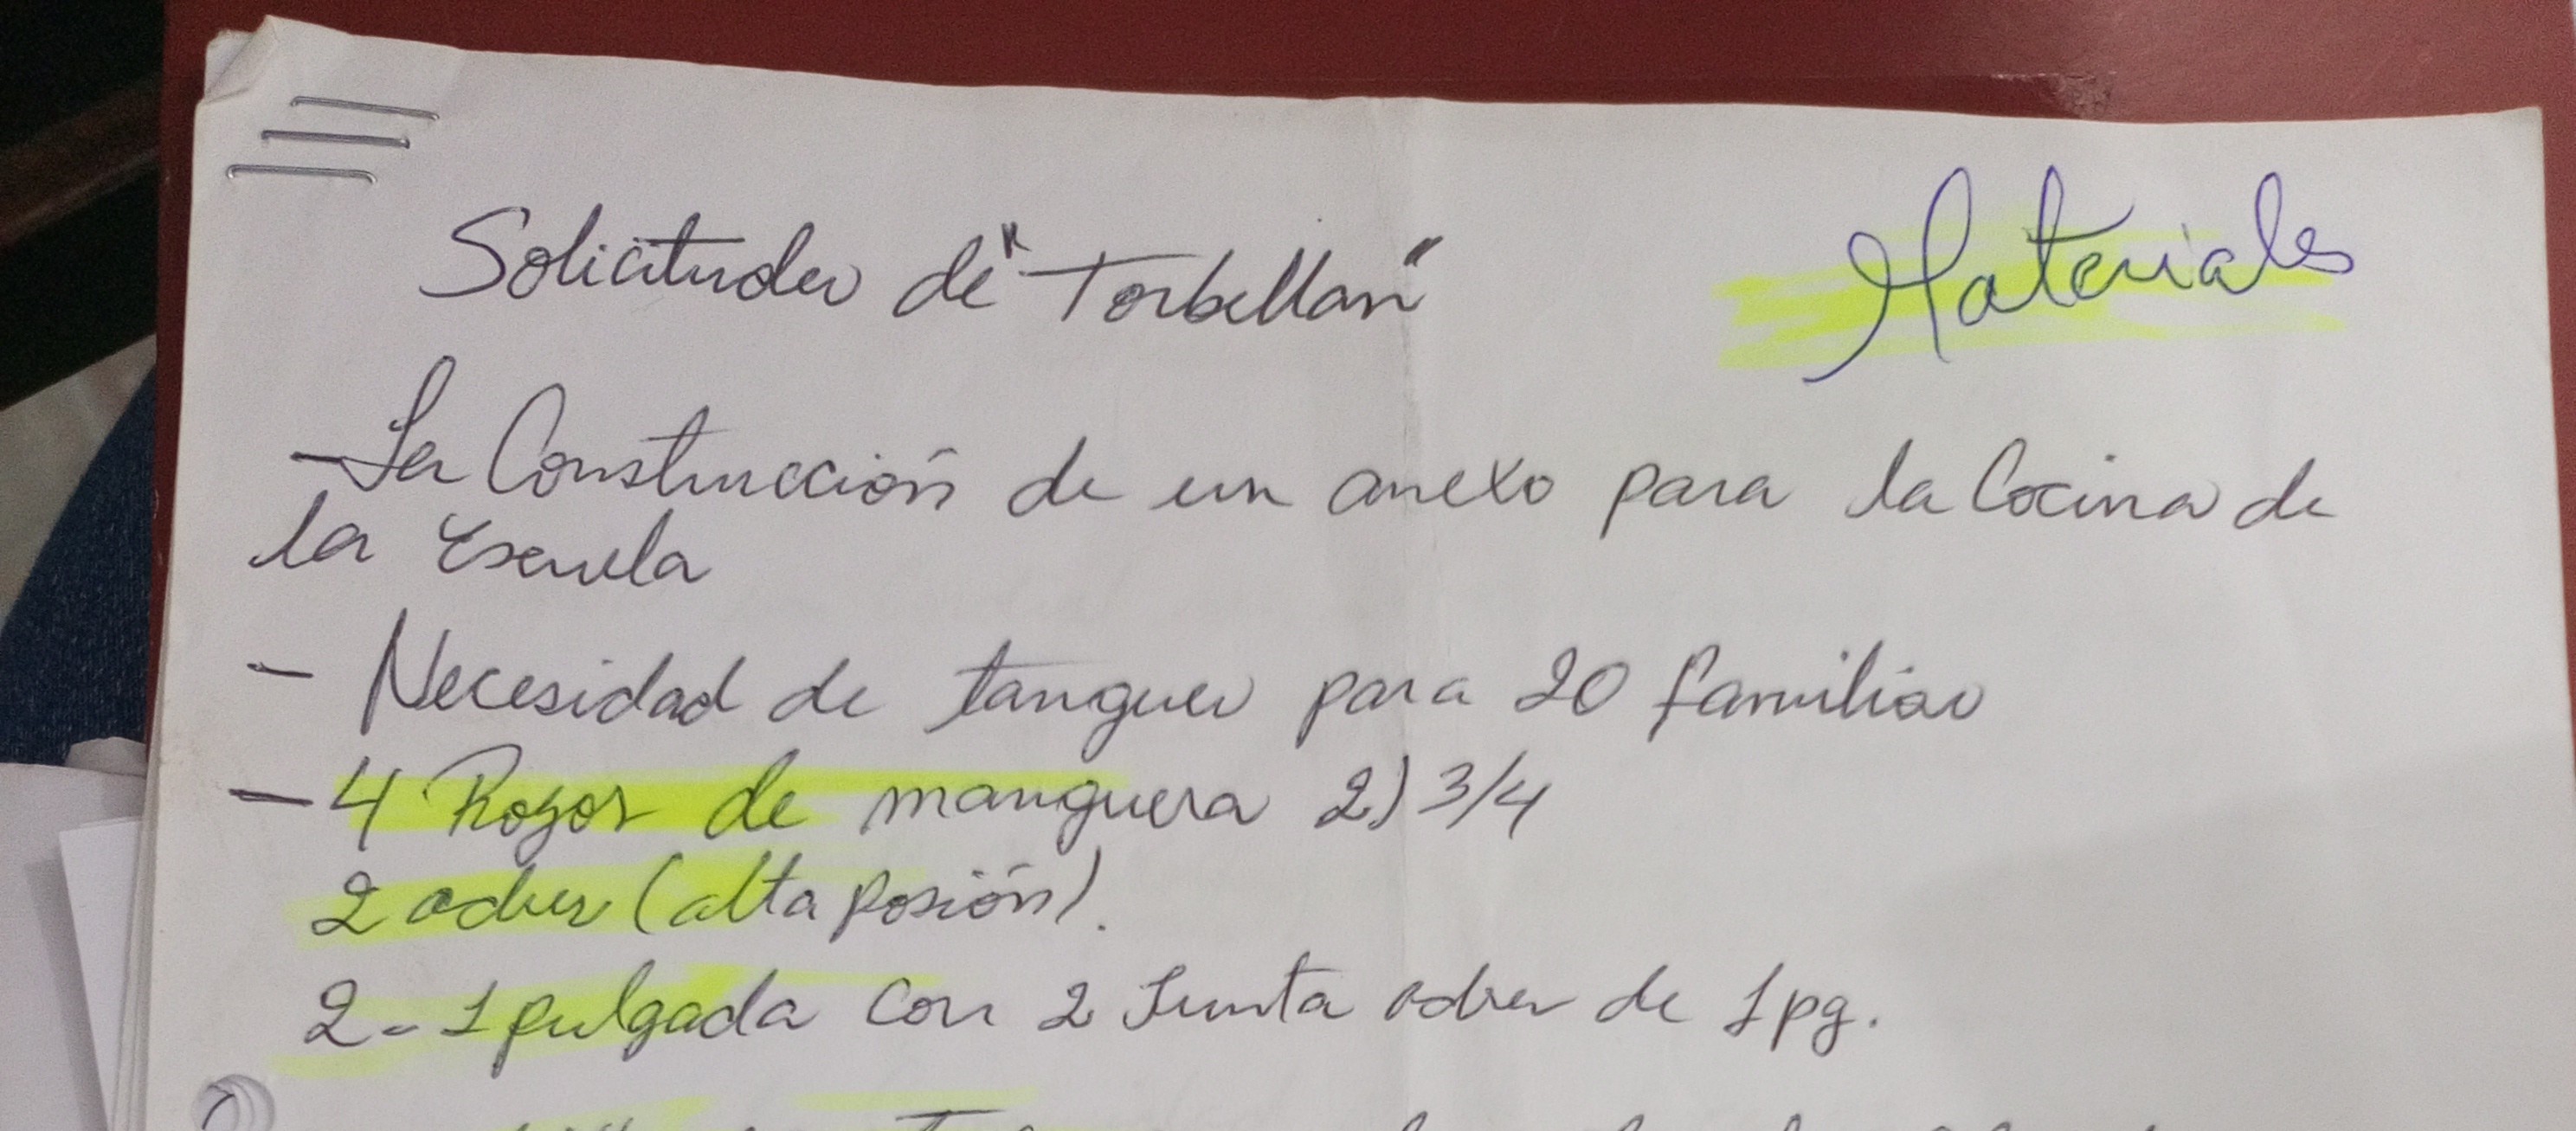 Solicitudes de "Torbellan"
Materiales
- La Construcción de un anexo para la Cocina de
la Escuela
- Necesidad de tanques para 20 familias
- 4 Royos de manguera 2) 3/4
2 (alta Posión).
2 - 1 pulgada con 2 Junta de 1 pg.